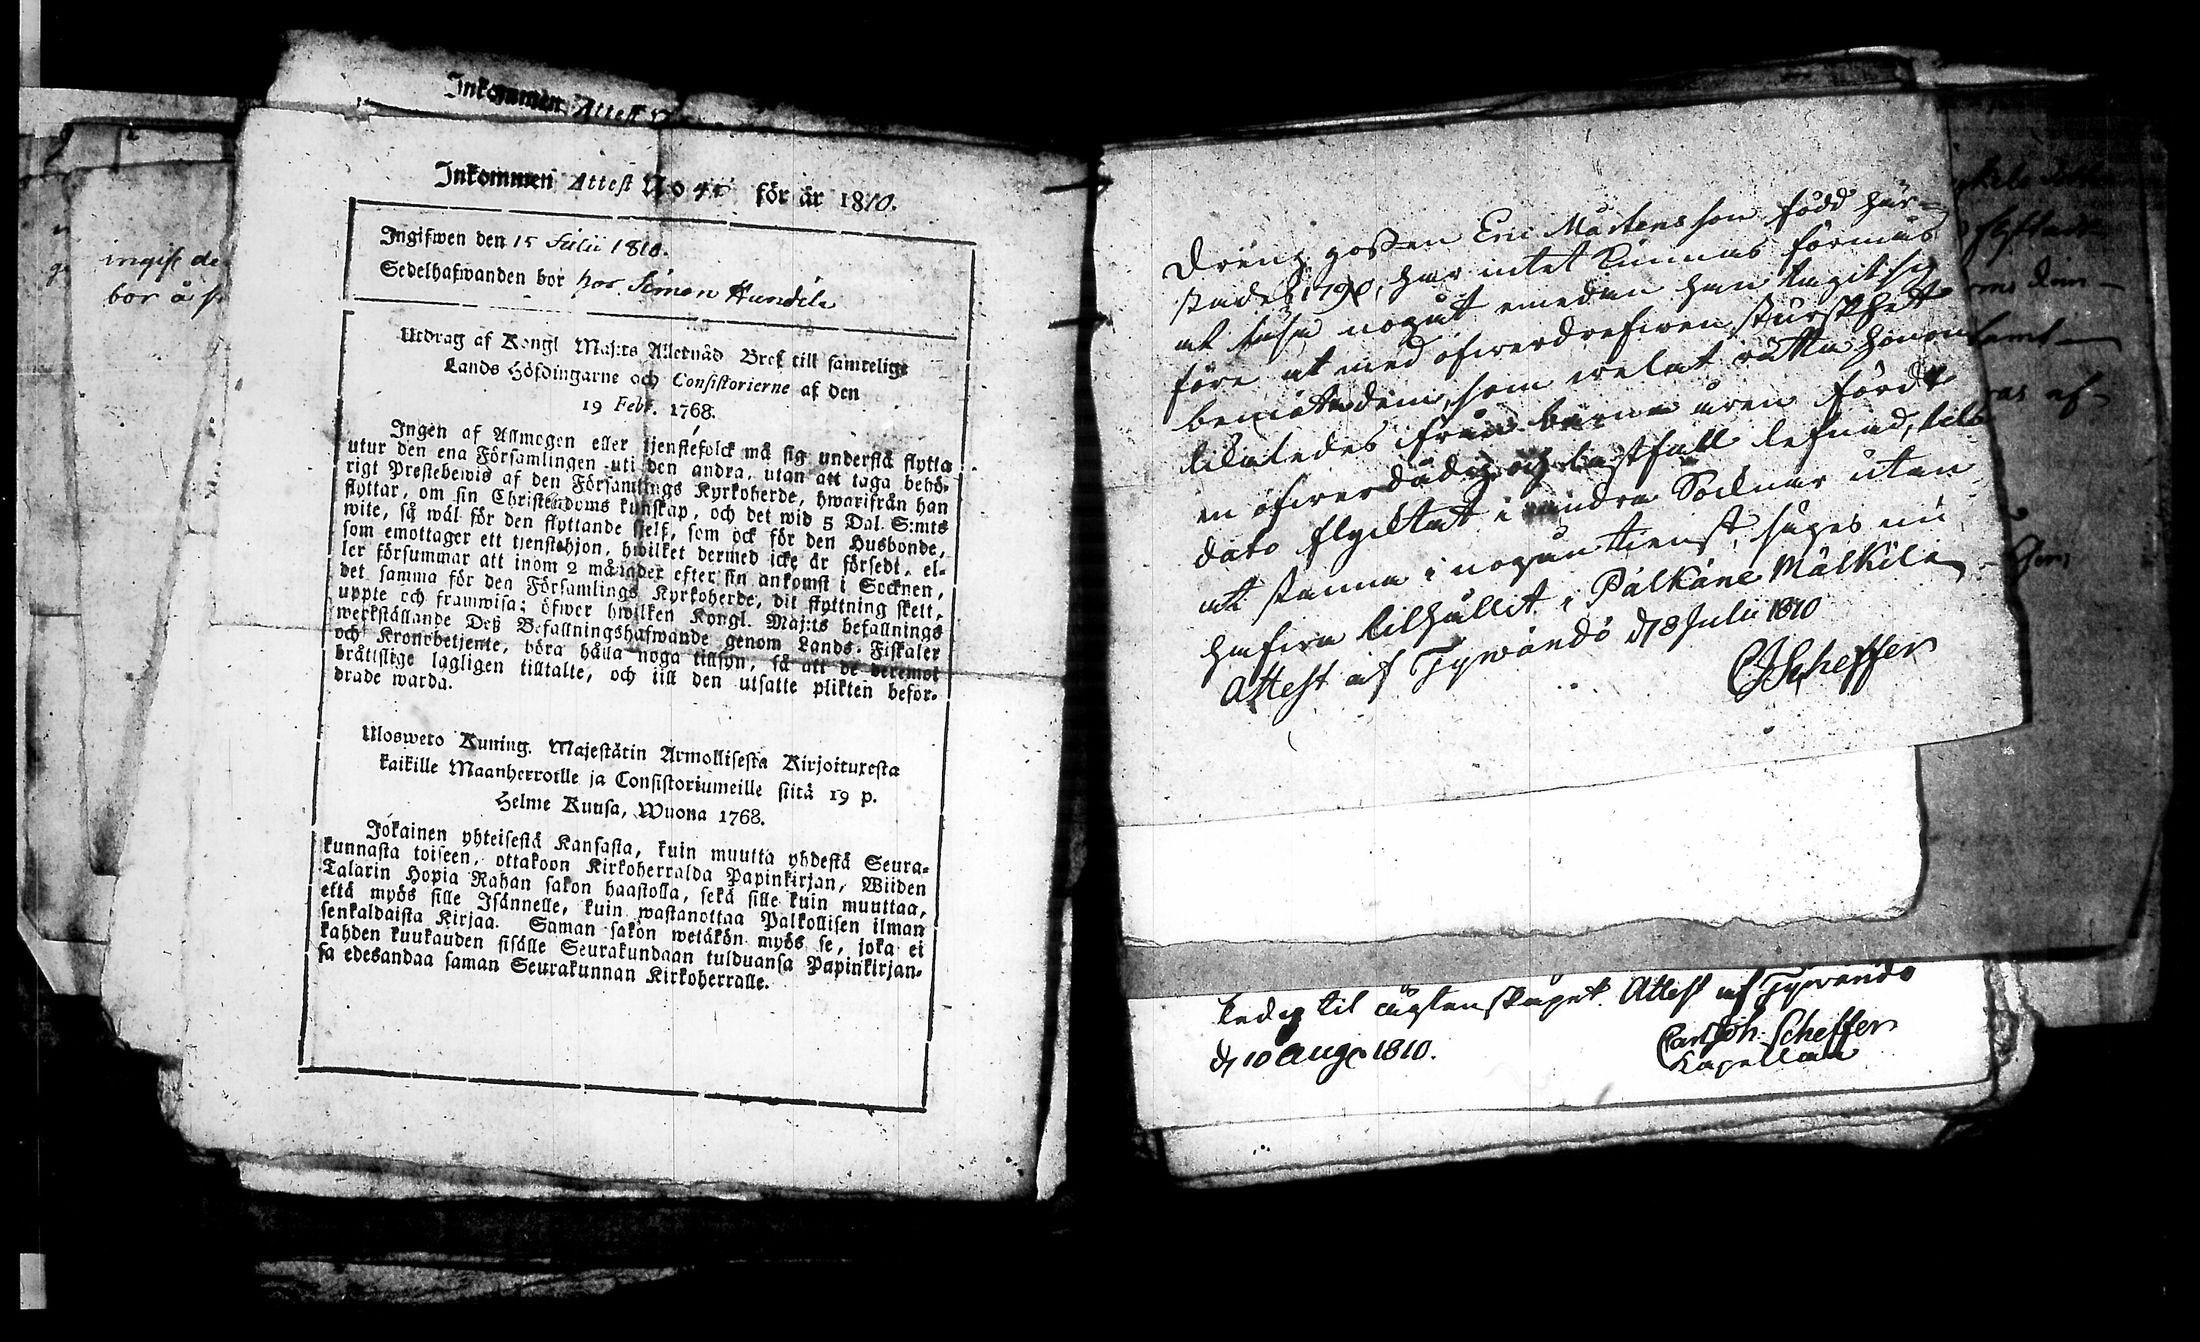 Inkommen Attest N
Inkommen Attest No 41 för år 1810.
Ingifwen den 15 Julii 1810.
Sedelhafwanden bor hos Simon Hundila
Utdrag af Kongl Maj:ts Allernåd Bref till samtelige
Lands Höfdingarne och Consistorierne af den
19 Febr. 1768.
Ingen af Allmogen eller tjenstefolck må sig understå flytta
utur den ena Församlingen uti den andra, utan att taga behö-
rigt Prestebewis af den Församlings Kyrkoherde, hwarifrån han
flyttar, om sin Christendoms kunskap, och det wid 5 Dal. S:mts
wite, så wäl för den flyttande sjelf, som ock för den Husbonde,
som emottager ett tjenstehjon, hwilket dermed icke är försedt, el-
ler försummar att inom 2 månader efter sin ankomst i Socknen,
det samma för den Församlings Kyrkoherde, dit flyttning skett,
uppte och framwisa; öfwer hwilken Kongl. Maj:ts befallnings
werkställande Deß Befallningshafwande genom Lands-Fiskaler
och Kronobetjente, böra hålla noga tillsyn, så att de deremot
bråttslige lagligen tilltalte, och till den utsatte plikten befor-
drade warda.
Uloswero Kuning. Majestätin Armollisesta Kirjoituxesta
kaikille Maanherroille ja Consistoriumeille siitä 19 p.
Helme Kuusa, Wuona 1768.
Jokainen yhteisestä Kansasta, kuin muutta yhdestä Seura-
kunnasta toiseen, ottakoon Kirkoherralda Papinkirjan, Wiiden
Talarin Hopia Rahan sakon haastolla, sekä sille kuin muuttaa,
että myös sille Isännelle, kuin wastanottaa Palkollisen ilman
senkaldaista Kirjaa. Saman sakon wetäkön myös se, joka ei
kahden kuukauden sisälle Seurakundaan tulduansa Papinkirjan-
sa edesandaa saman Seurakunnan Kirkoherralle.
ingift de
bor å
Dräng goßen Eric Mårtensson född här-
städes 1790, har intet kunnat förmås
at läsa nogot emedan han tagit sig
före at med öfwerdrefwen sturskhet
bemöta dem, som welat rätta honom
likaledes ifrån barna åren fördt
en öfwerdådig och lastfull lefnad, tils
dato flycktat i andra Socknar utan
at stanna i nogon tienst, säges nu
hafwa tilhållit i Pälkäne Mälkilä
Attest af Tyrwändö d 8 Julii 1810
CJScheffer
ledig til äktenskapet. Attest af Tyrwändö
d 10 Aug 1810.
Carl Joh. Scheffer
Kapellan